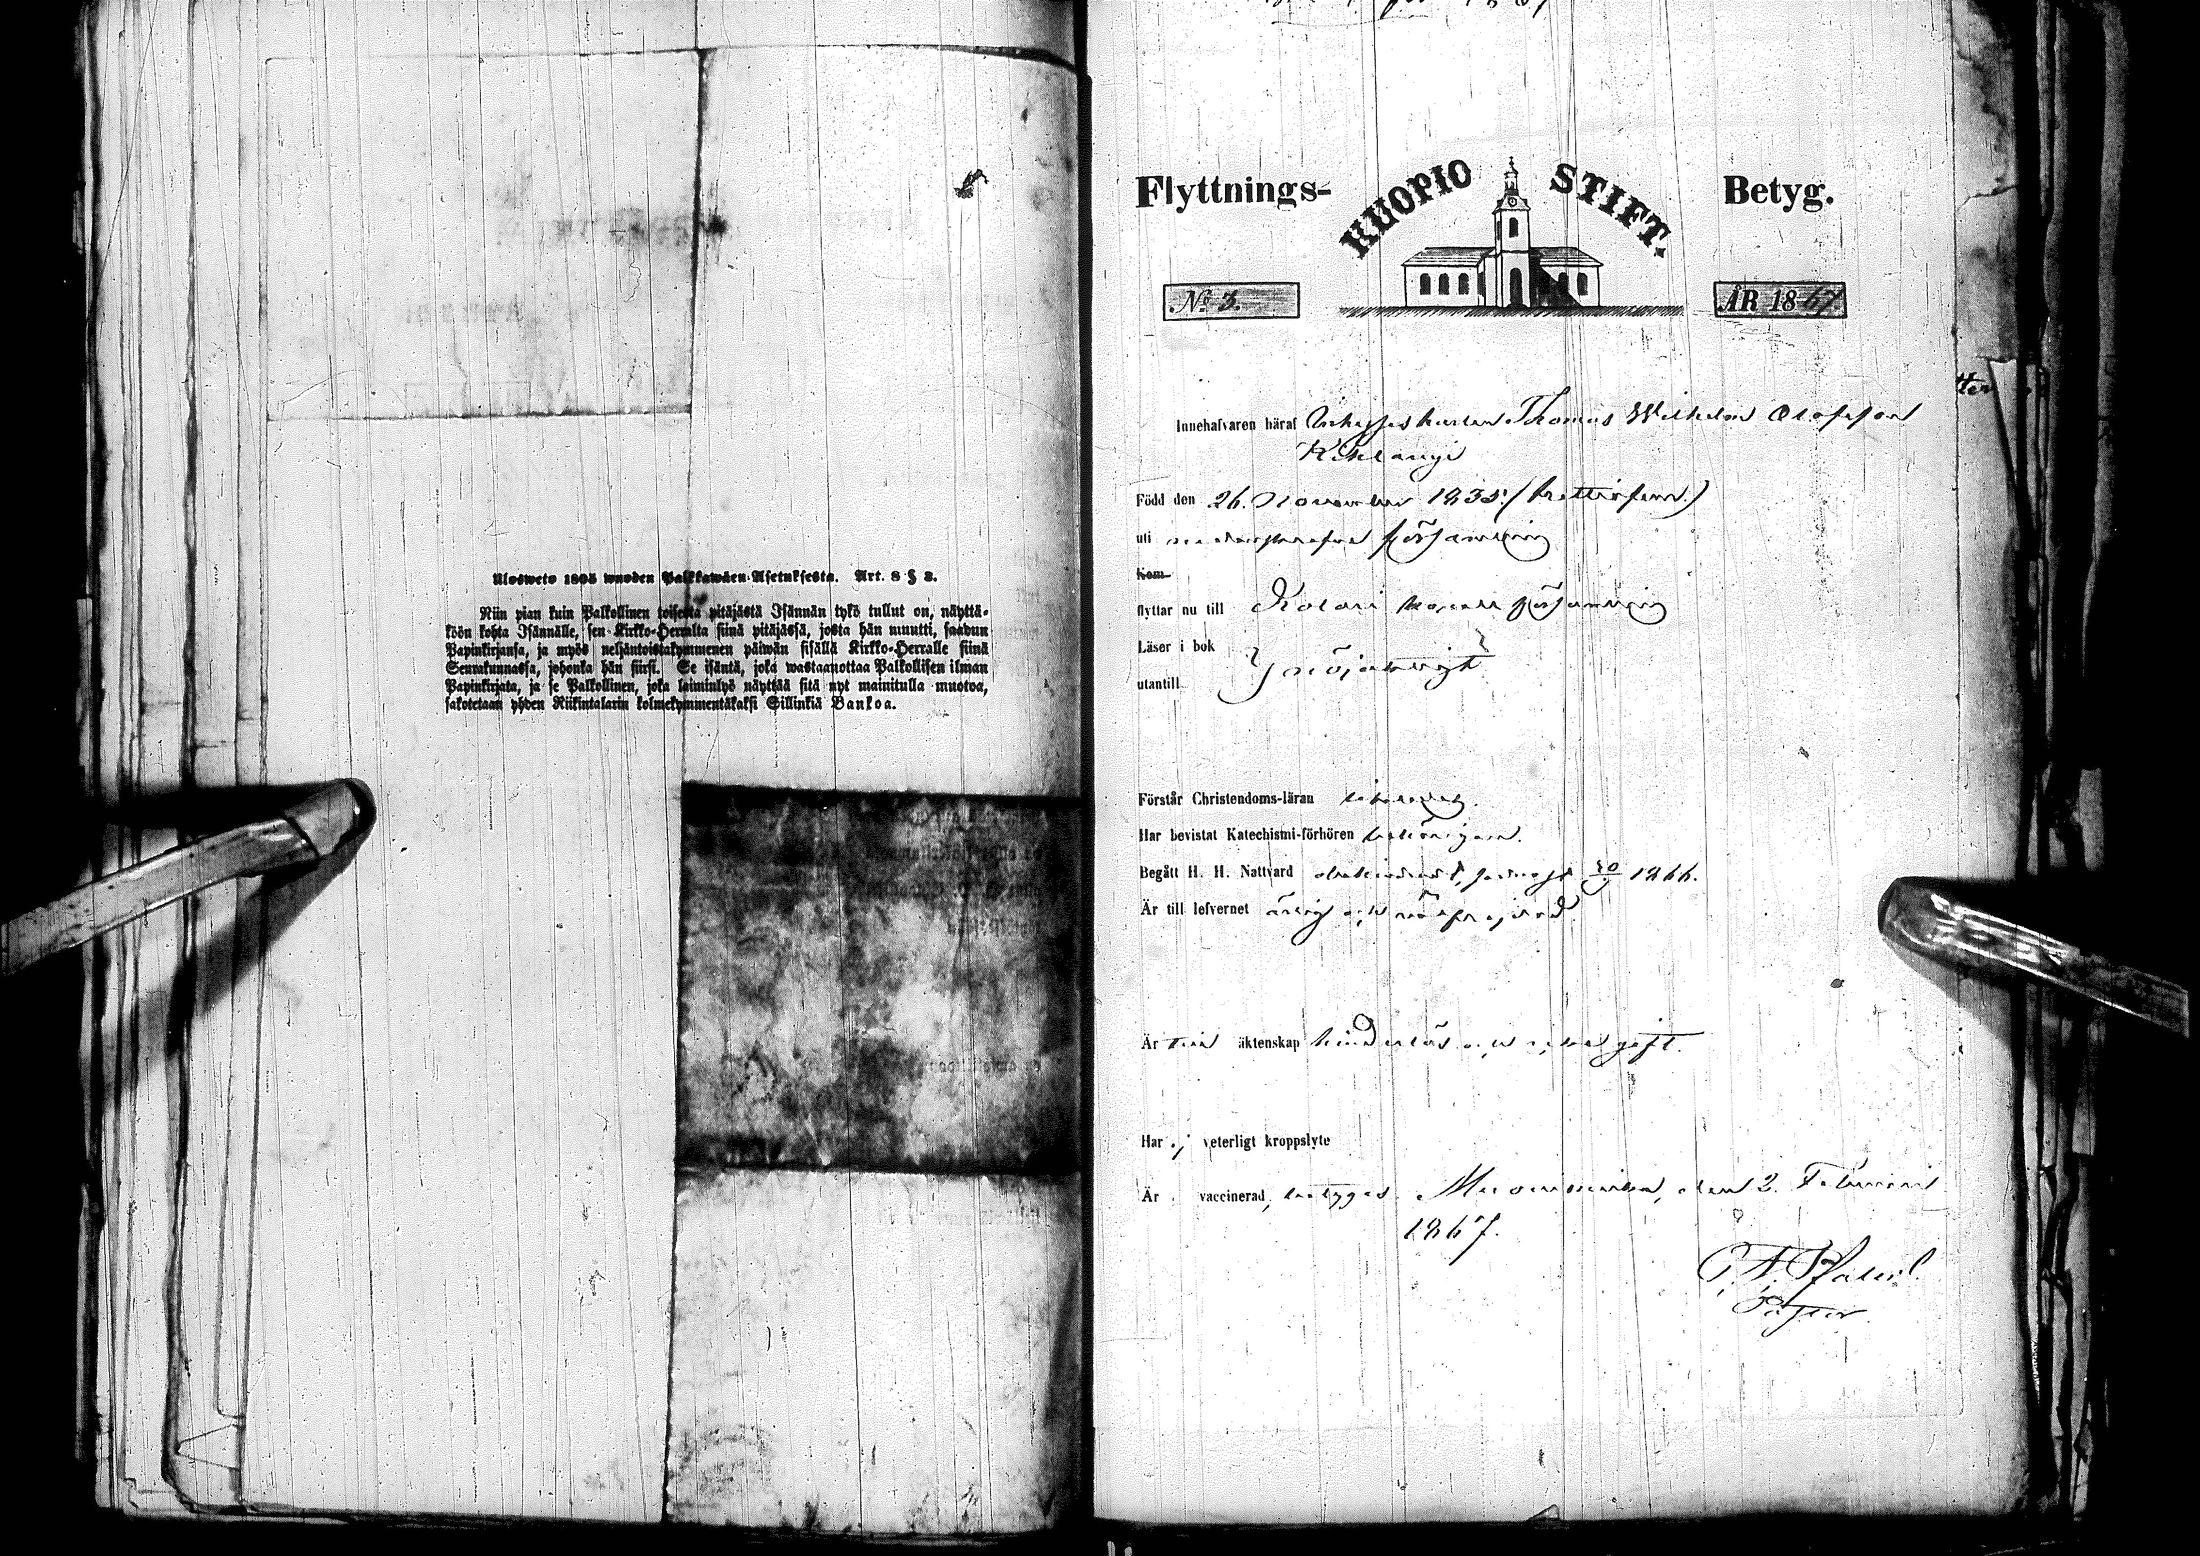 Ulosweto 1805 wuoden Palkkawäen-Asetuksesta. Art. 8 § 2.
Niin pian kuin Palkollinen toisesta pitäjästä Isännän tykö tullut on, näyttä-
köön kohta Isännälle, sen Kirkko-Herralta siinä pitäjässä, josta hän muutti, saadun
Papinkirjansa, ja myös neljäntoistakymmenen päiwän sisällä Kirkko-Herralle siinä
Seurakunnassa, johonka hän siirsi. Se isäntä, joka wastaanottaa Palkollisen ilman
Papinkirjata, ja se Palkollinen, joka laiminlyö näyttää sitä nyt mainitulla muotoa,
sakotetaan yhden Riikintalarin kolmekymmentäkaksi Sillinkiä Bankoa.
Flyttnings- KUOPIO STIFT. Betyg.
No 3. ÅR 1867.
Innehafvaren häraf Thomas Wilhelm Olofsson
Kihlangi
Född den 26. November 1835. (trettiofem.)
uti församling
Kom
flyttar nu till Kolari kapell församling
Läser i bok
utantill
Förstår Christendoms-läran
Har bevistat Katechismi-förhören behörigen.
Begått H. H. Nattvard 1866.
Är till lefvernet ärlig och
Är till äktenskap hinderslös och gift.
Har ej veterligt kroppslyte
Är vaccinerad, betygas. Muonioniska, den 2. Februari
1867.
Pastor